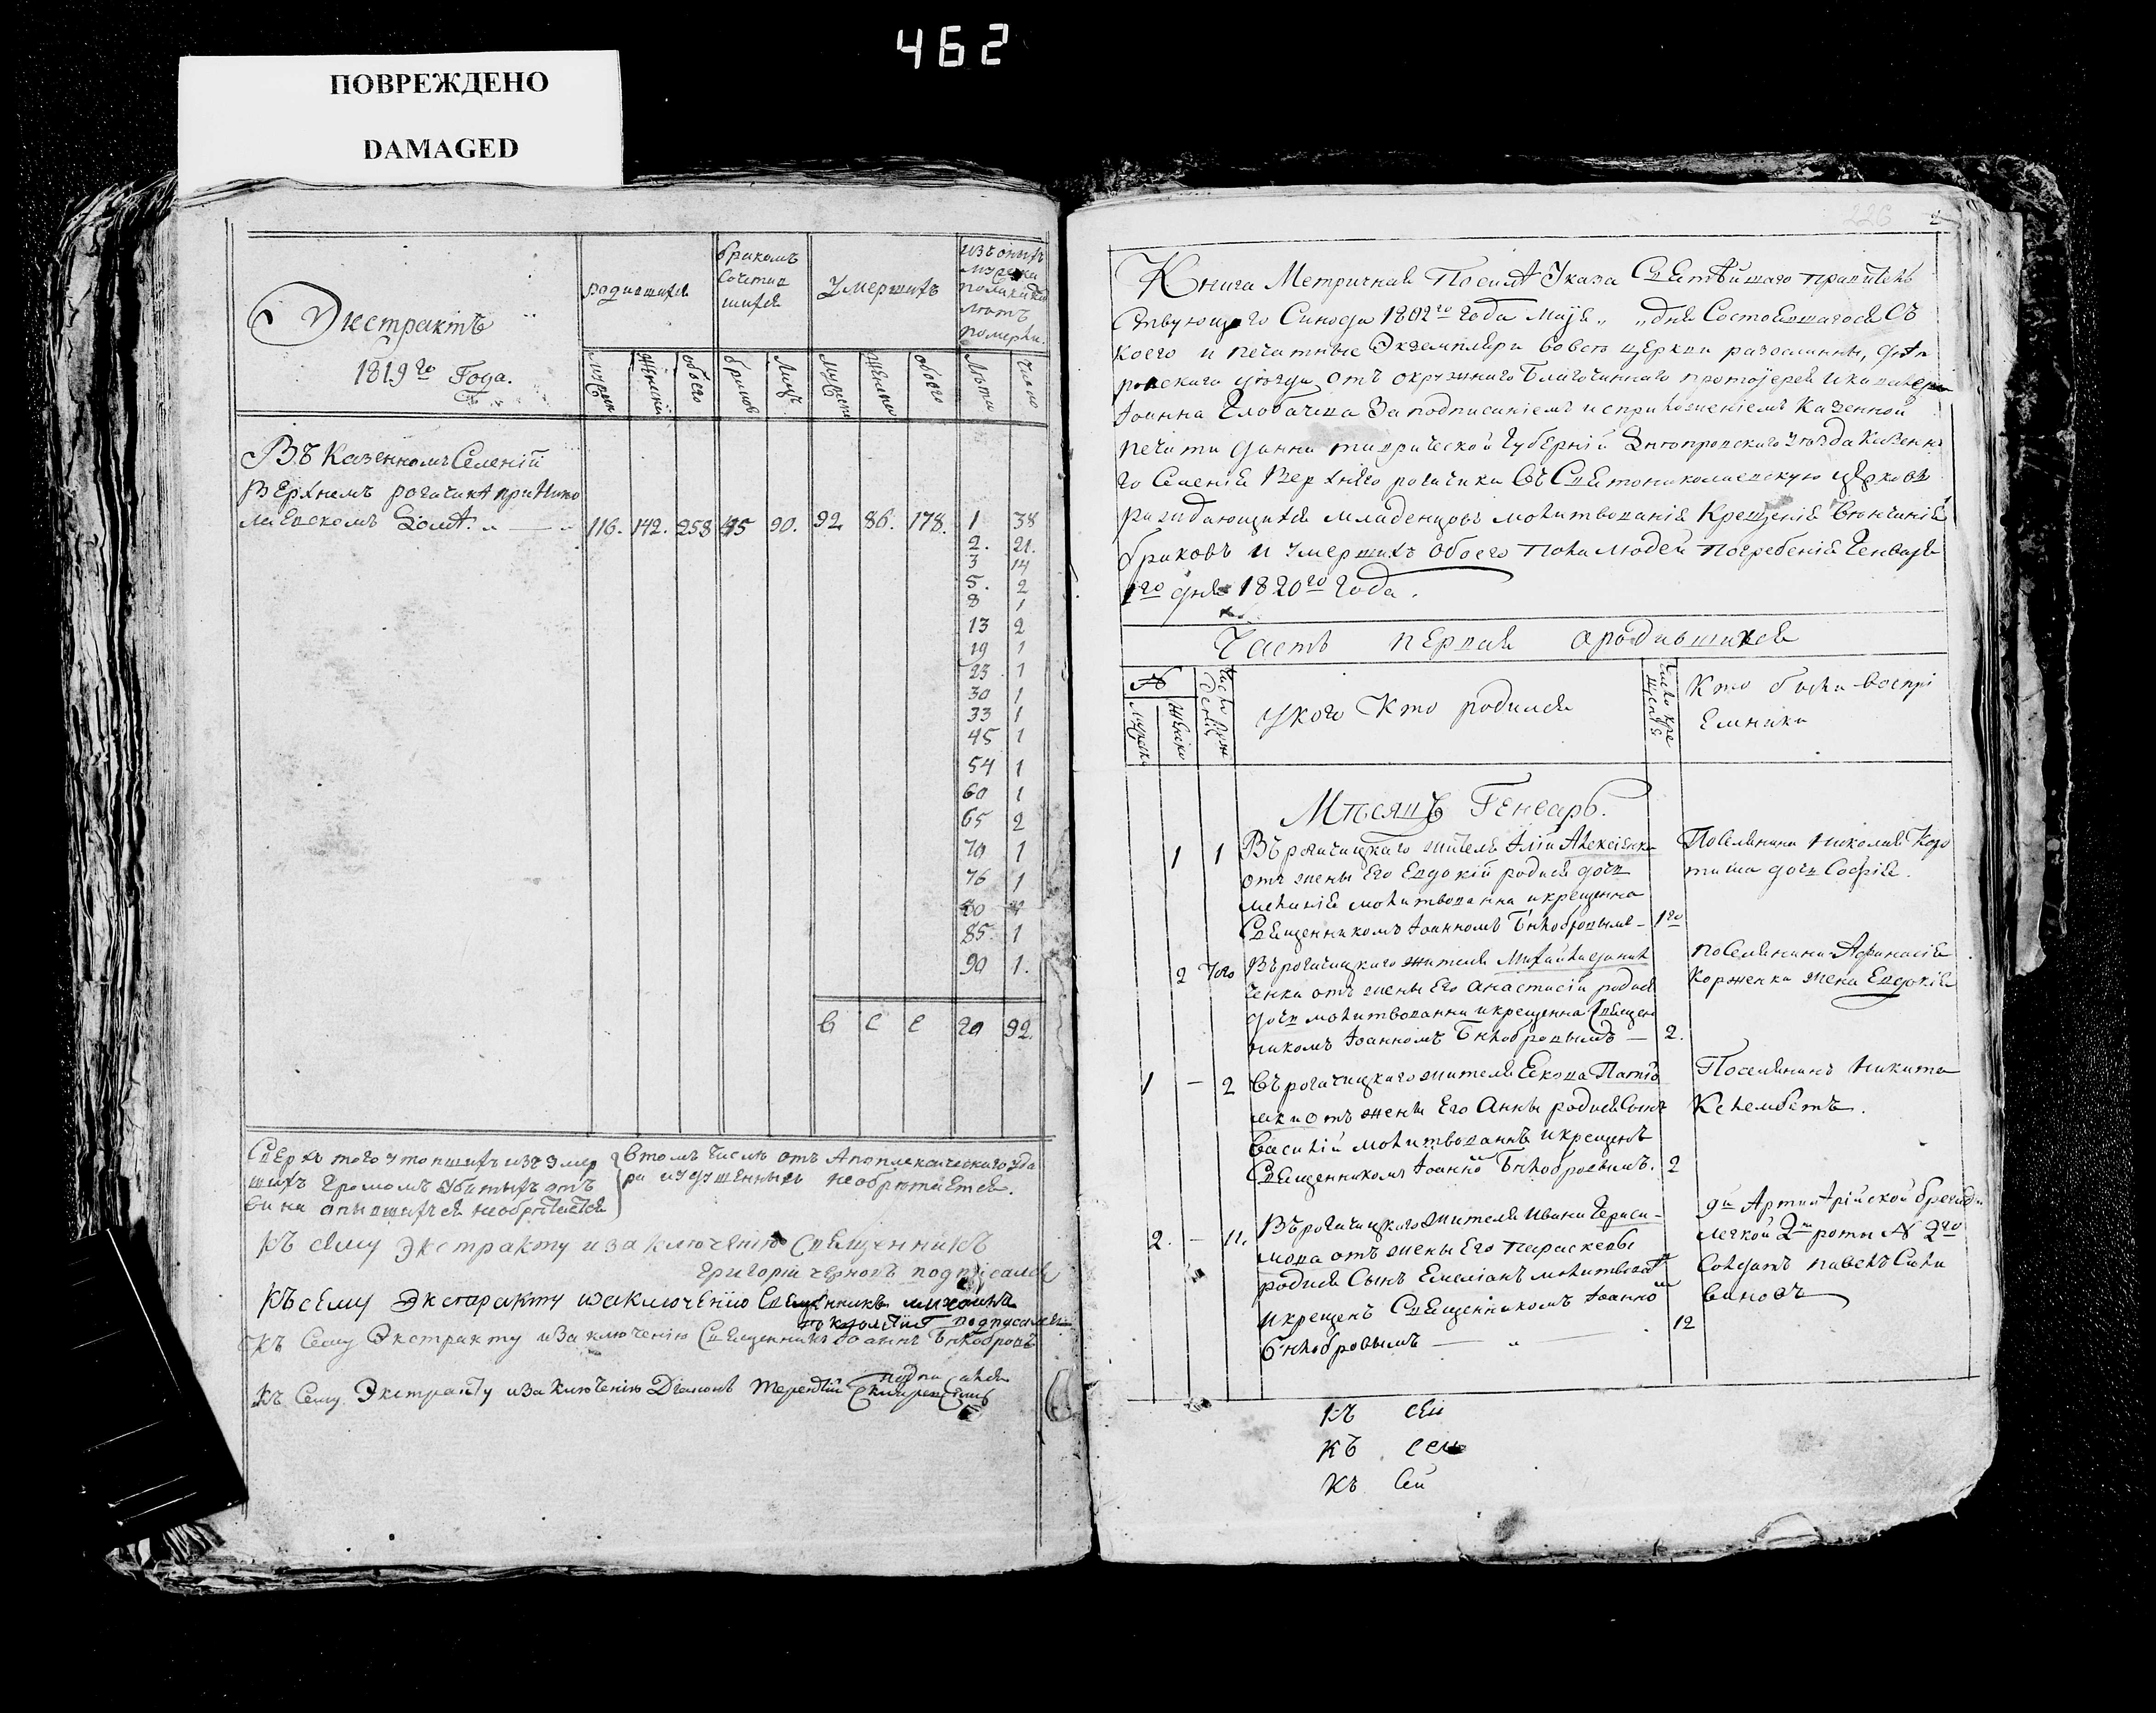 462
ПОВРЕЖДЕНО
DAMAGED
Экстрактъ
1819го Года.
родившихся
бракомъ
сочетав
шихся
Умершихъ
изъ оныхъ
мужеска
пола
лѣтъ
померли.
мужеск
женска
обоего
браков
лицъ
мужеска
женска
обоего
Лѣта
число
Въ Казенномъ Селеніи
Верхнемъ рогачикѣ при Нико
лаевском
116. 142. 258 45 90. 92 86. 178. 1 38
2. 21.
3 14
5. 2
8 1
13 2
19 1
23 1
30 1
33 1
45 1
54 1
60 1
65 2
70 1
76 1
80
85. 1
90 1.
в с е 92.
Сверхъ того утопшихъ изъ умер
шихъ громомъ убитыхъ отъ
вина опившихся необрѣтается
Втомъ числѣ отъ Апоплексическаго уда
ра издушенныхъ необрѣтается.
Къ сему экстракту изаключенію Священникъ
Григорій Черновъ подписался
Къ сему экстракту изаключенію Священникъ
подписался
Къ Сему Экстракту изаключенію Священникъ Іоаннъ Бѣлобровъ
подписался
Къ Сему Экстракту изаключенію Діаконъ Терентій
226
Книга Метричная По силѣ Указа Святѣйшаго Правитель
ствующаго Синода 1802го года Маія „ „ дня Состоявшагося Съ
коего и печатные Экземпляри вовсѣ церкви разосланны, Днѣп
ровскаго уѣзда отъ окружнаго Благочиннаго протоіерея икавалера
Іоанна Чловачева Заподписаніемъ исприложеніемъ Казенной
печати данна таврической Губерніи Днѣпровскаго уѣзда Казенна
го Селенія Верхняго рогачика въ Святониколаевскую церковь
раждающихся младенцовъ молитвованія Крещенія Вѣнчанія
браковъ и умершихъ обоего пола людей погребенія Генваря
1го дня 1820го Года.
Часть первая о родившихся
№
Мужеска
Женска
Число рож
денія
Укого Кто родился
Число кре
щенія
Кто были воспрі
емники
Мѣсяцъ Генварь.
1 1 Въ рогачицкаго жителя Іліи Алексіенка
отъ жены Его Евдокіи родися дочь
Меланія молитвованна икрещенна
Священникомъ Іоанномъ Бѣлобровымъ – 1го
Поселянина Николая Коро
тиша дочь Софія.
2 Того Въ рогачицкаго жителя
ченка отъ жены Его Анастасіи родися
дочь молитвованна икрещенна Священ
никомъ Іоанномъ Бѣлобровымъ – 2.
поселянина Афанасія
Корженка жена Евдокія
1 – 2 Въ рогачицкаго жителя
отъ жены Его Анны родися Сынъ
Василій молитвованъ икрещенъ
Священникомъ Іоанно Бѣлобровымъ. 2
Поселянинъ Никита
Келембетъ.
2. – 11. Въ рогачицкаго жителя Ивана Гераси-
мова отъ жены Его параскевы
родися Сынъ Емеліанъ молитвованъ
икрещенъ Священникомъ Іоанно
Бѣлобровымъ – „ – 12
Артиллерійской бригады
легкой 2й роты № 2го
Солдатъ павелъ Сили
вановъ
Къ сей
Къ сей
Къ Сей